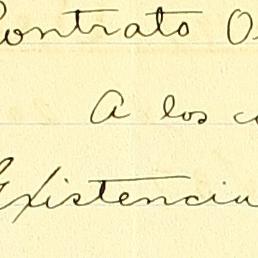 Contrato O
A los c
Existencia